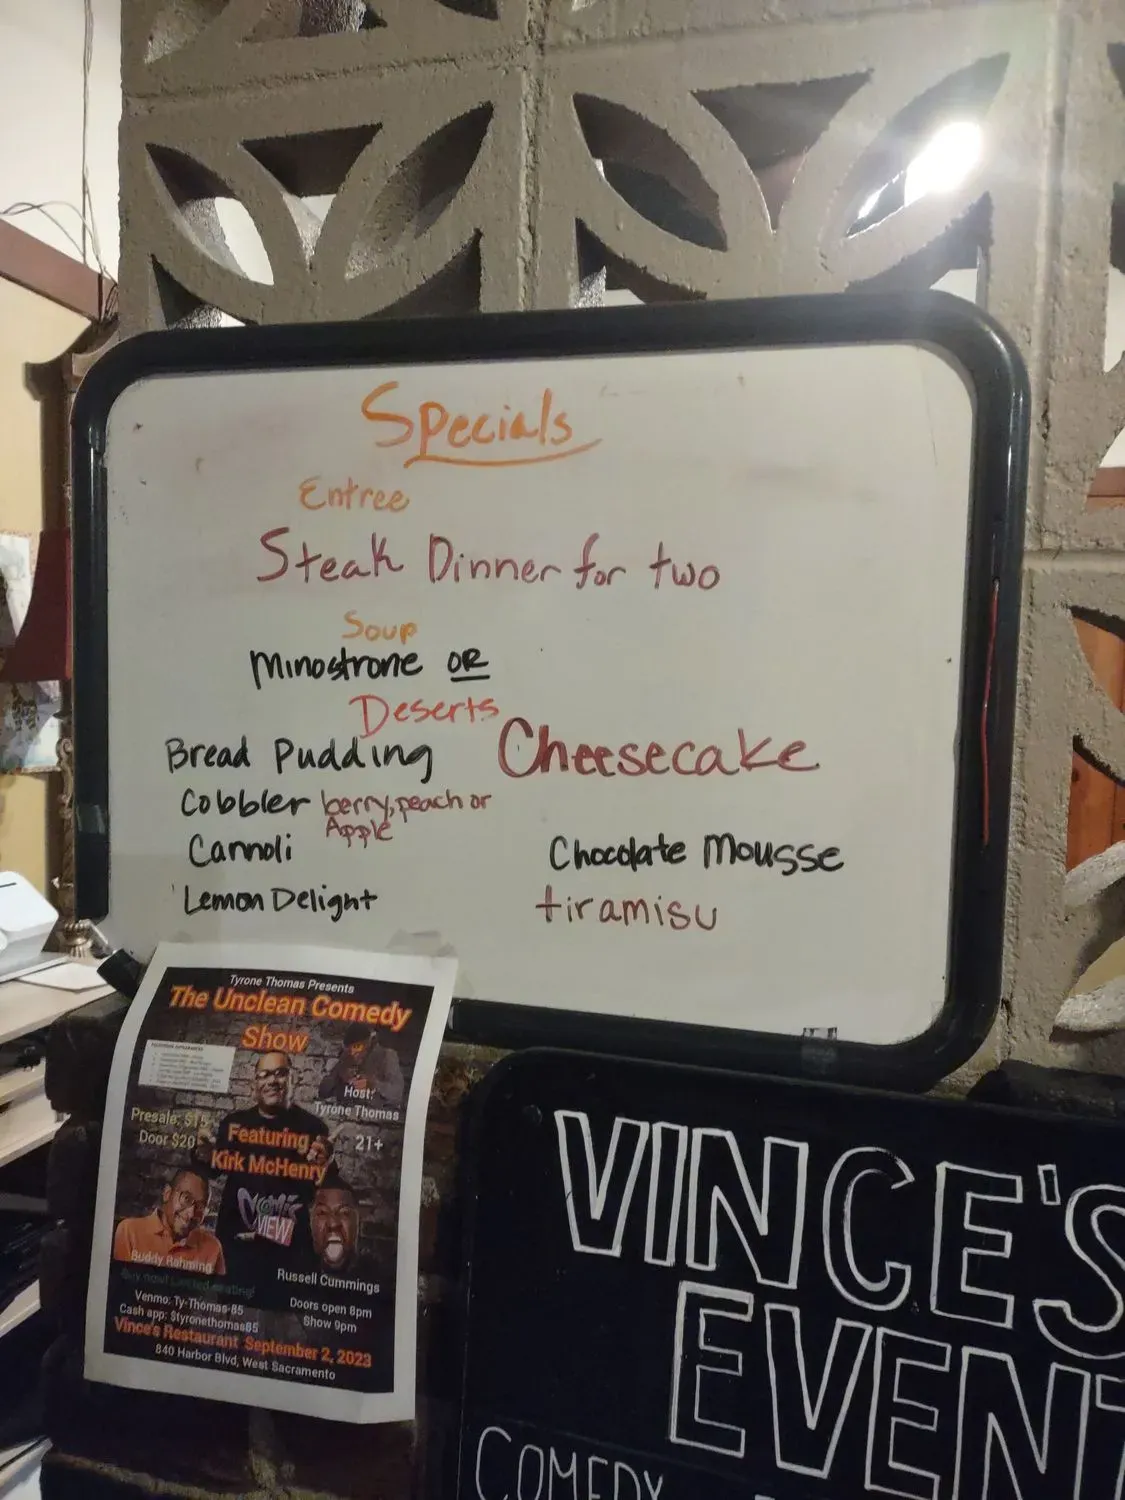 Specials
Entree
Steak Dinner for two
Soup
Minostrone OR
Deserts
Bread Pudding
Cheesecake
Cobbler berry, peach or
Apple
Cannoli
Chocolate Mousse
Lemon Delight
tiramisu
Tyrone Thomas Presents
The Unclean Comedy
Show
Host:
Tyrone Thomas
Presale: $15
Door $20
21+
Featuring
Kirk McHenry
Comic
VIEW
Buddy Rahming
Russell Cummings
Buy now! Limited seating!
Venmo: Ty-Thomas-85
Cash app: $tyronethomas85
Doors open 8pm
Show 9pm
Vince's Restaurant September 2, 2023
840 Harbor Blvd, West Sacramento
VINCE'S
EVENT
COMEDY